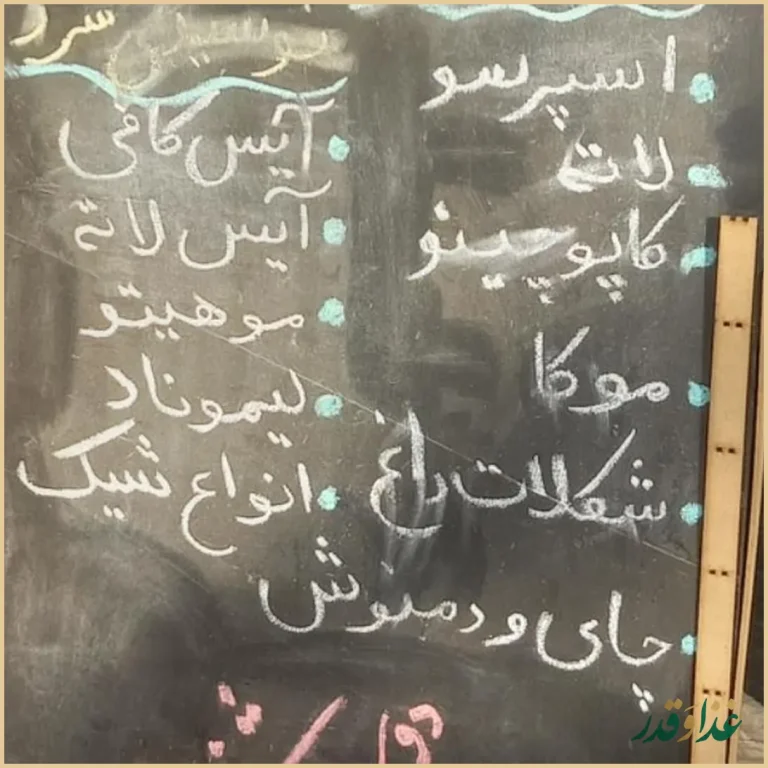 اسپرسو
لاته
کاپوچینو
موکا
شکلات داغ
چای و دمنوش
نوسیدنی سرد
آیس کافی
آیس لاته
موهیتو
لیموناد
انواع شیک
غذا و قدر